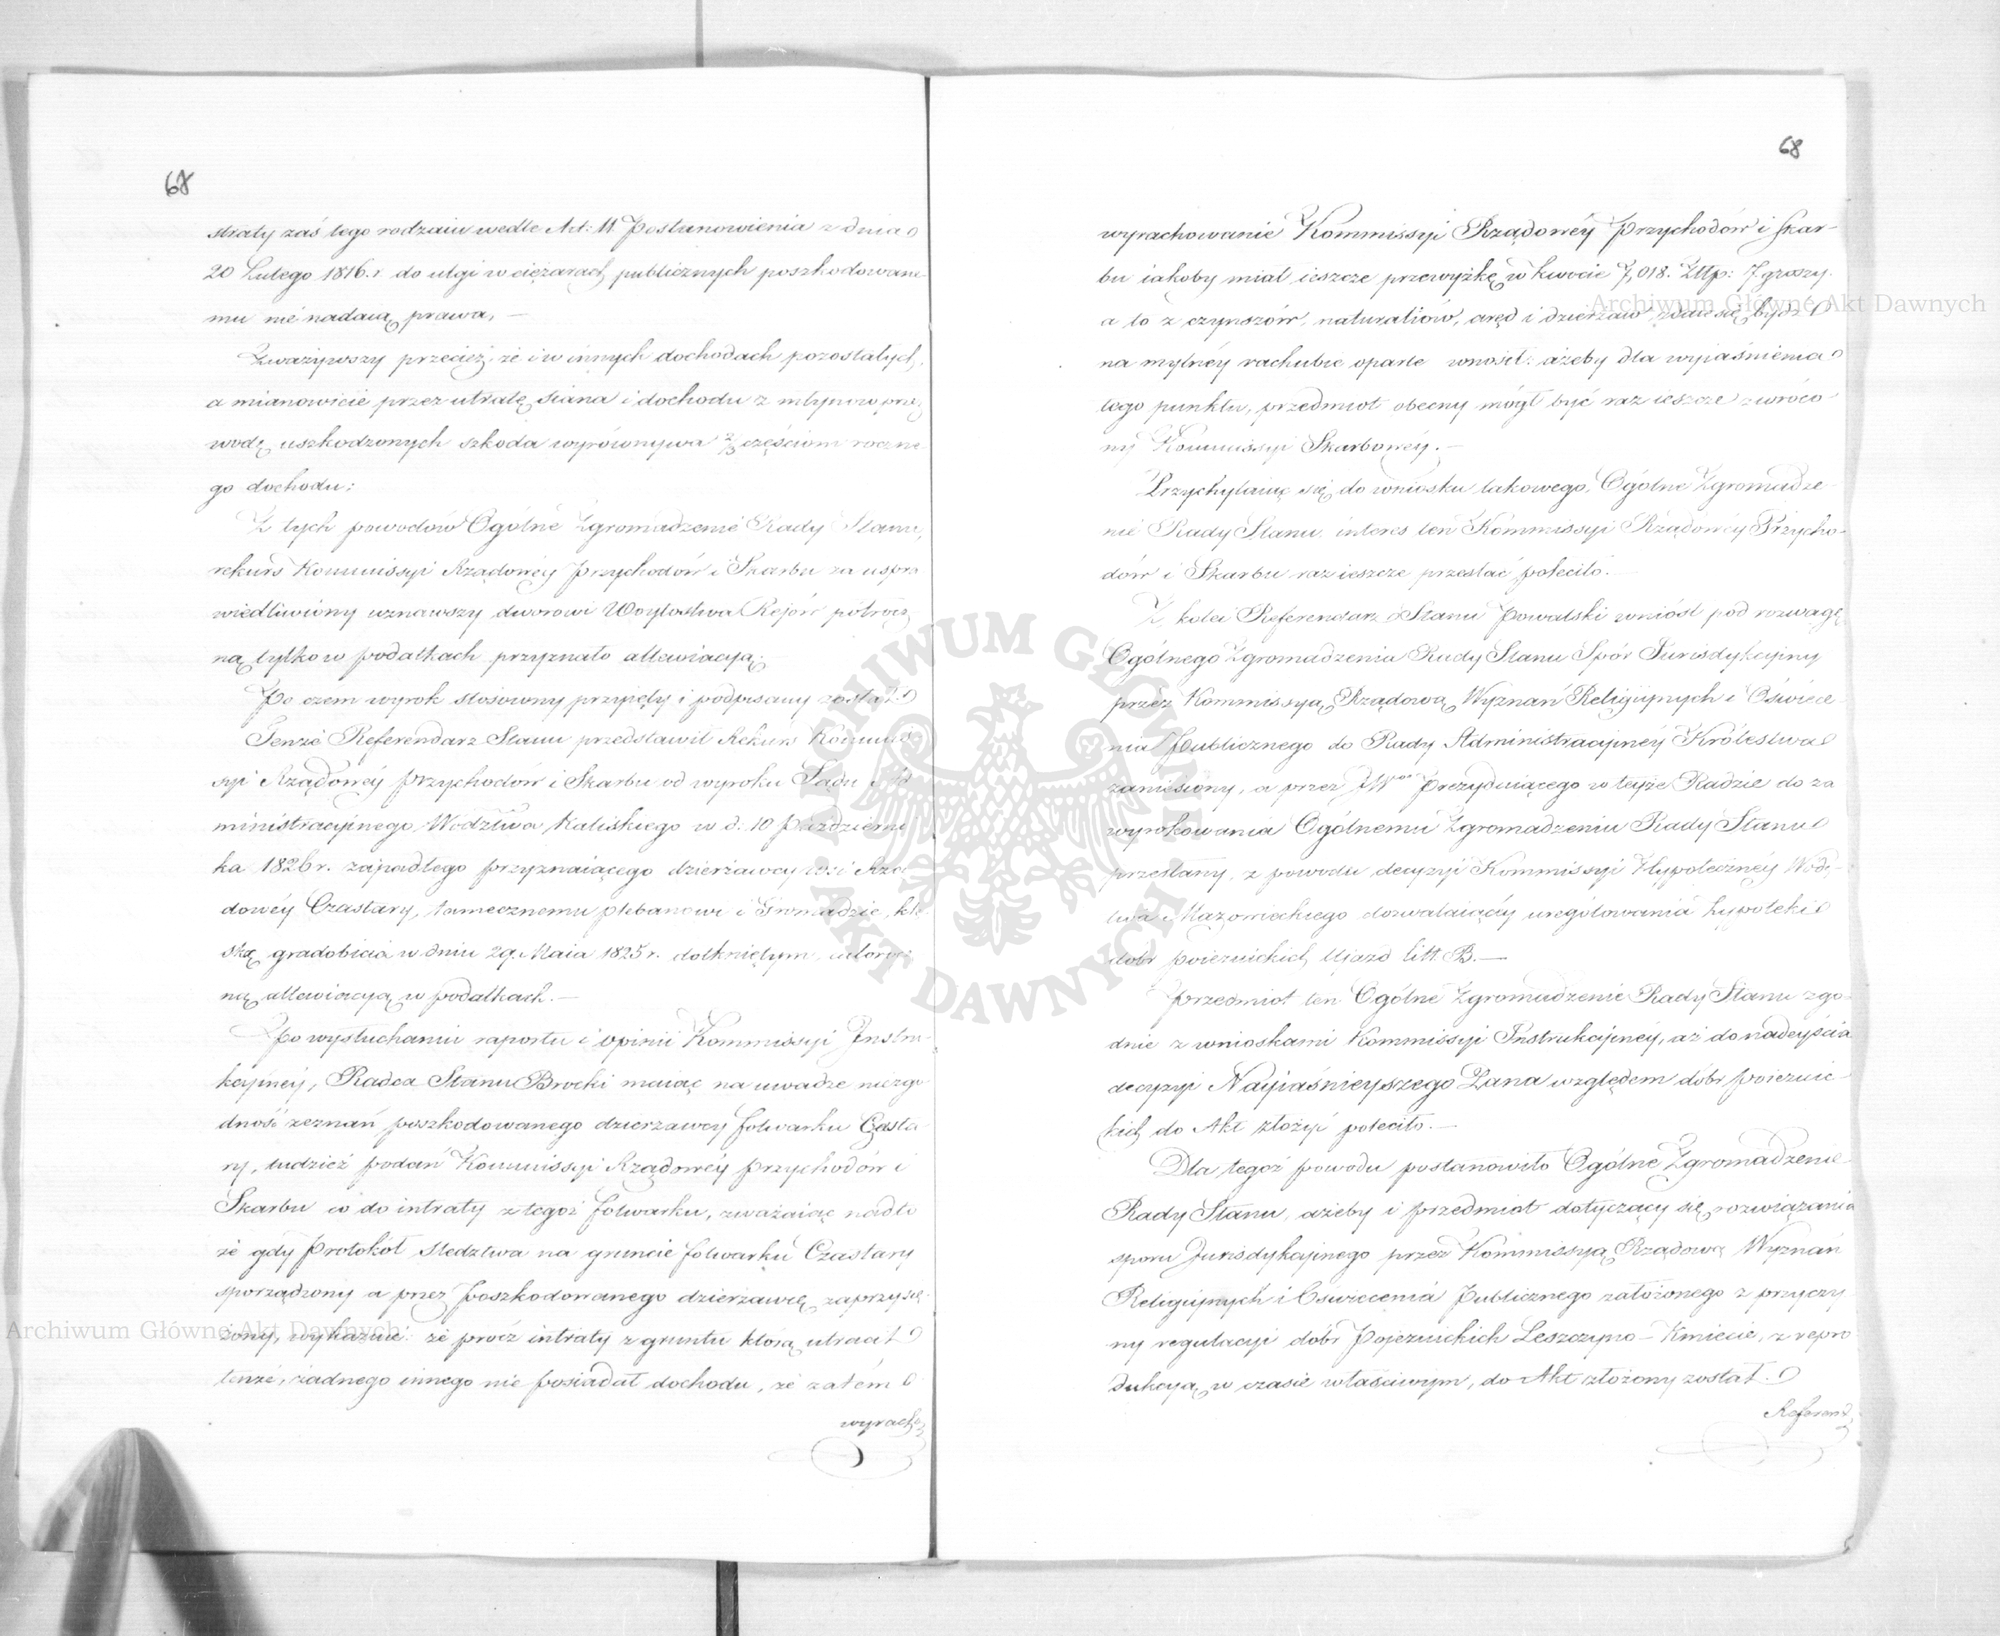 67
straty zaś tego rodzaiu wedle Art: 11. Postanowienia z dnia
20 Lutego 1816. r. do ulgi w ciężarach publicznych poszkodowane-
mu nie nadaią prawa. —
Zważywszy przecież, że i w innych dochodach pozostałych,
a mianowicie przez utratę siana i dochodu z młynów przez
wodę uszkodzonych szkoda wyrównywa 2/3 częściom roczne-
go dochodu;
Z tych powodów Ogólne Zgromadzenie Rady Stanu,
rekurs Kommissyi Rządowéy Przychodów i Skarbu za uspra-
wiedliwiony uznawszy dworowi Woytostwa półrocz-
ną tylko w podatkach przyznało allewiacyą.
Po czem wyrok stosowny przyięty i podpisany został
Tenże Referendarz Stanu przedstawił Rekurs Kommis-
syi Rządowéy Przychodów i Skarbu od wyroku Sądu Ad-
ministracyjnego Wodztwa Kaliskiego w d. 10 Październi-
ka 1826 r. zapadłego przyznaiącego dzierżawcy wsi Rzą-
dowéy Czastary, tamecznemu plebanowi i Gromadzie, klę-
ską gradobicia w dniu 29. Maia 1825 r. dotkniętym, całorocz-
ną allewiacyą w podatkach. —
Po wysłuchaniu raportu i opinii Kommissyi Instru-
kcyinéy, Radca Stanu Brocki maiąc na uwadze niezgo-
dność zeznań poszkodowanego dzierżawcy folwarku Czasta-
ry, tudzież podań Kommissyi Rządowéy Przychodów i
Skarbu co do intraty z tegoż folwarku, zważaiąc nadto
że gdy Protokół śledztwa na gruncie folwarku Czastary
sporządzony a przez poszkodowanego dzierżawcę zaprzysię-
żony, wykazuie: że prócz intraty z gruntu którą utracił
tenże, żadnego innego nie posiadał dochodu, że zatém
wyrach
68
wyrachowanie Kommissyi Rządowéy Przychodów i Skar-
bu iakoby miał ieszcze przewyżkę w kwocie 7,018. Złtp: 7 groszy.
a to z czynszów, naturaliów, aręd i dzierżaw, zdaie się bydź
na mylnéy rachubie oparte wnosił: ażeby dla wyiaśnienia
tego punktu, przedmiot obecny mógł być raz ieszcze zwróco-
ny Kommissyi Skarbowéy. —
Przychylaiąc się do wniosku takowego, Ogólne Zgromadze-
nie Rady Stanu, interes ten Kommissyi Rządowéy Przycho-
dów i Skarbu raz ieszcze przesłać poleciło. —
Z kolei Referendarz Stanu Powalski wniósł pod rozwagę
Ogólnego Zgromadzenia Rady Stanu Spór Jurisdykcyiny
przez Kommissyą Rządową Wyznań Religijnych i Oświece-
nia Publicznego do Rady Administracyjnéy Królestwa
zaniesiony, a przez Prezyduiącego w teyże Radzie do za-
wyrokowania Ogólnemu Zgromadzeniu Rady Stanu
przesłany, z powodu decyzyi Kommissyi Hypotecznéy Wodz-
twa Mazowieckiego dozwalaiącéy uregulowania hypoteki
dóbr poiezuickich Ujazd litt. B. —
Przedmiot ten Ogólne Zgromadzenie Rady Stanu zgo-
dnie z wnioskami Kommissyi Instrukcyjnéy, aż do nadeyścia
decyzyi Nayiaśnieyszego Pana względem dóbr poiezuic-
kich do Akt złożyć poleciło. —
Dla tegoż powodu postanowiło Ogólne Zgromadzenie
Rady Stanu, ażeby i przedmiot dotyczący się rozwiązania
sporu Jurisdykcyjnego przez Kommissyą Rządową Wyznań
Religijnych i Oświecenia Publicznego założonego z przyczy-
ny regulacyi dóbr Pojezuickich Leszczyno – Kmiecie, z repro-
dukcyą w czasie właściwym, do Akt złożony został.
Referend
Archiwum Główne Akt Dawnych
Archiwum Główne Akt Dawnych
ARCHIWUM GŁÓWNE AKT DAWNYCH